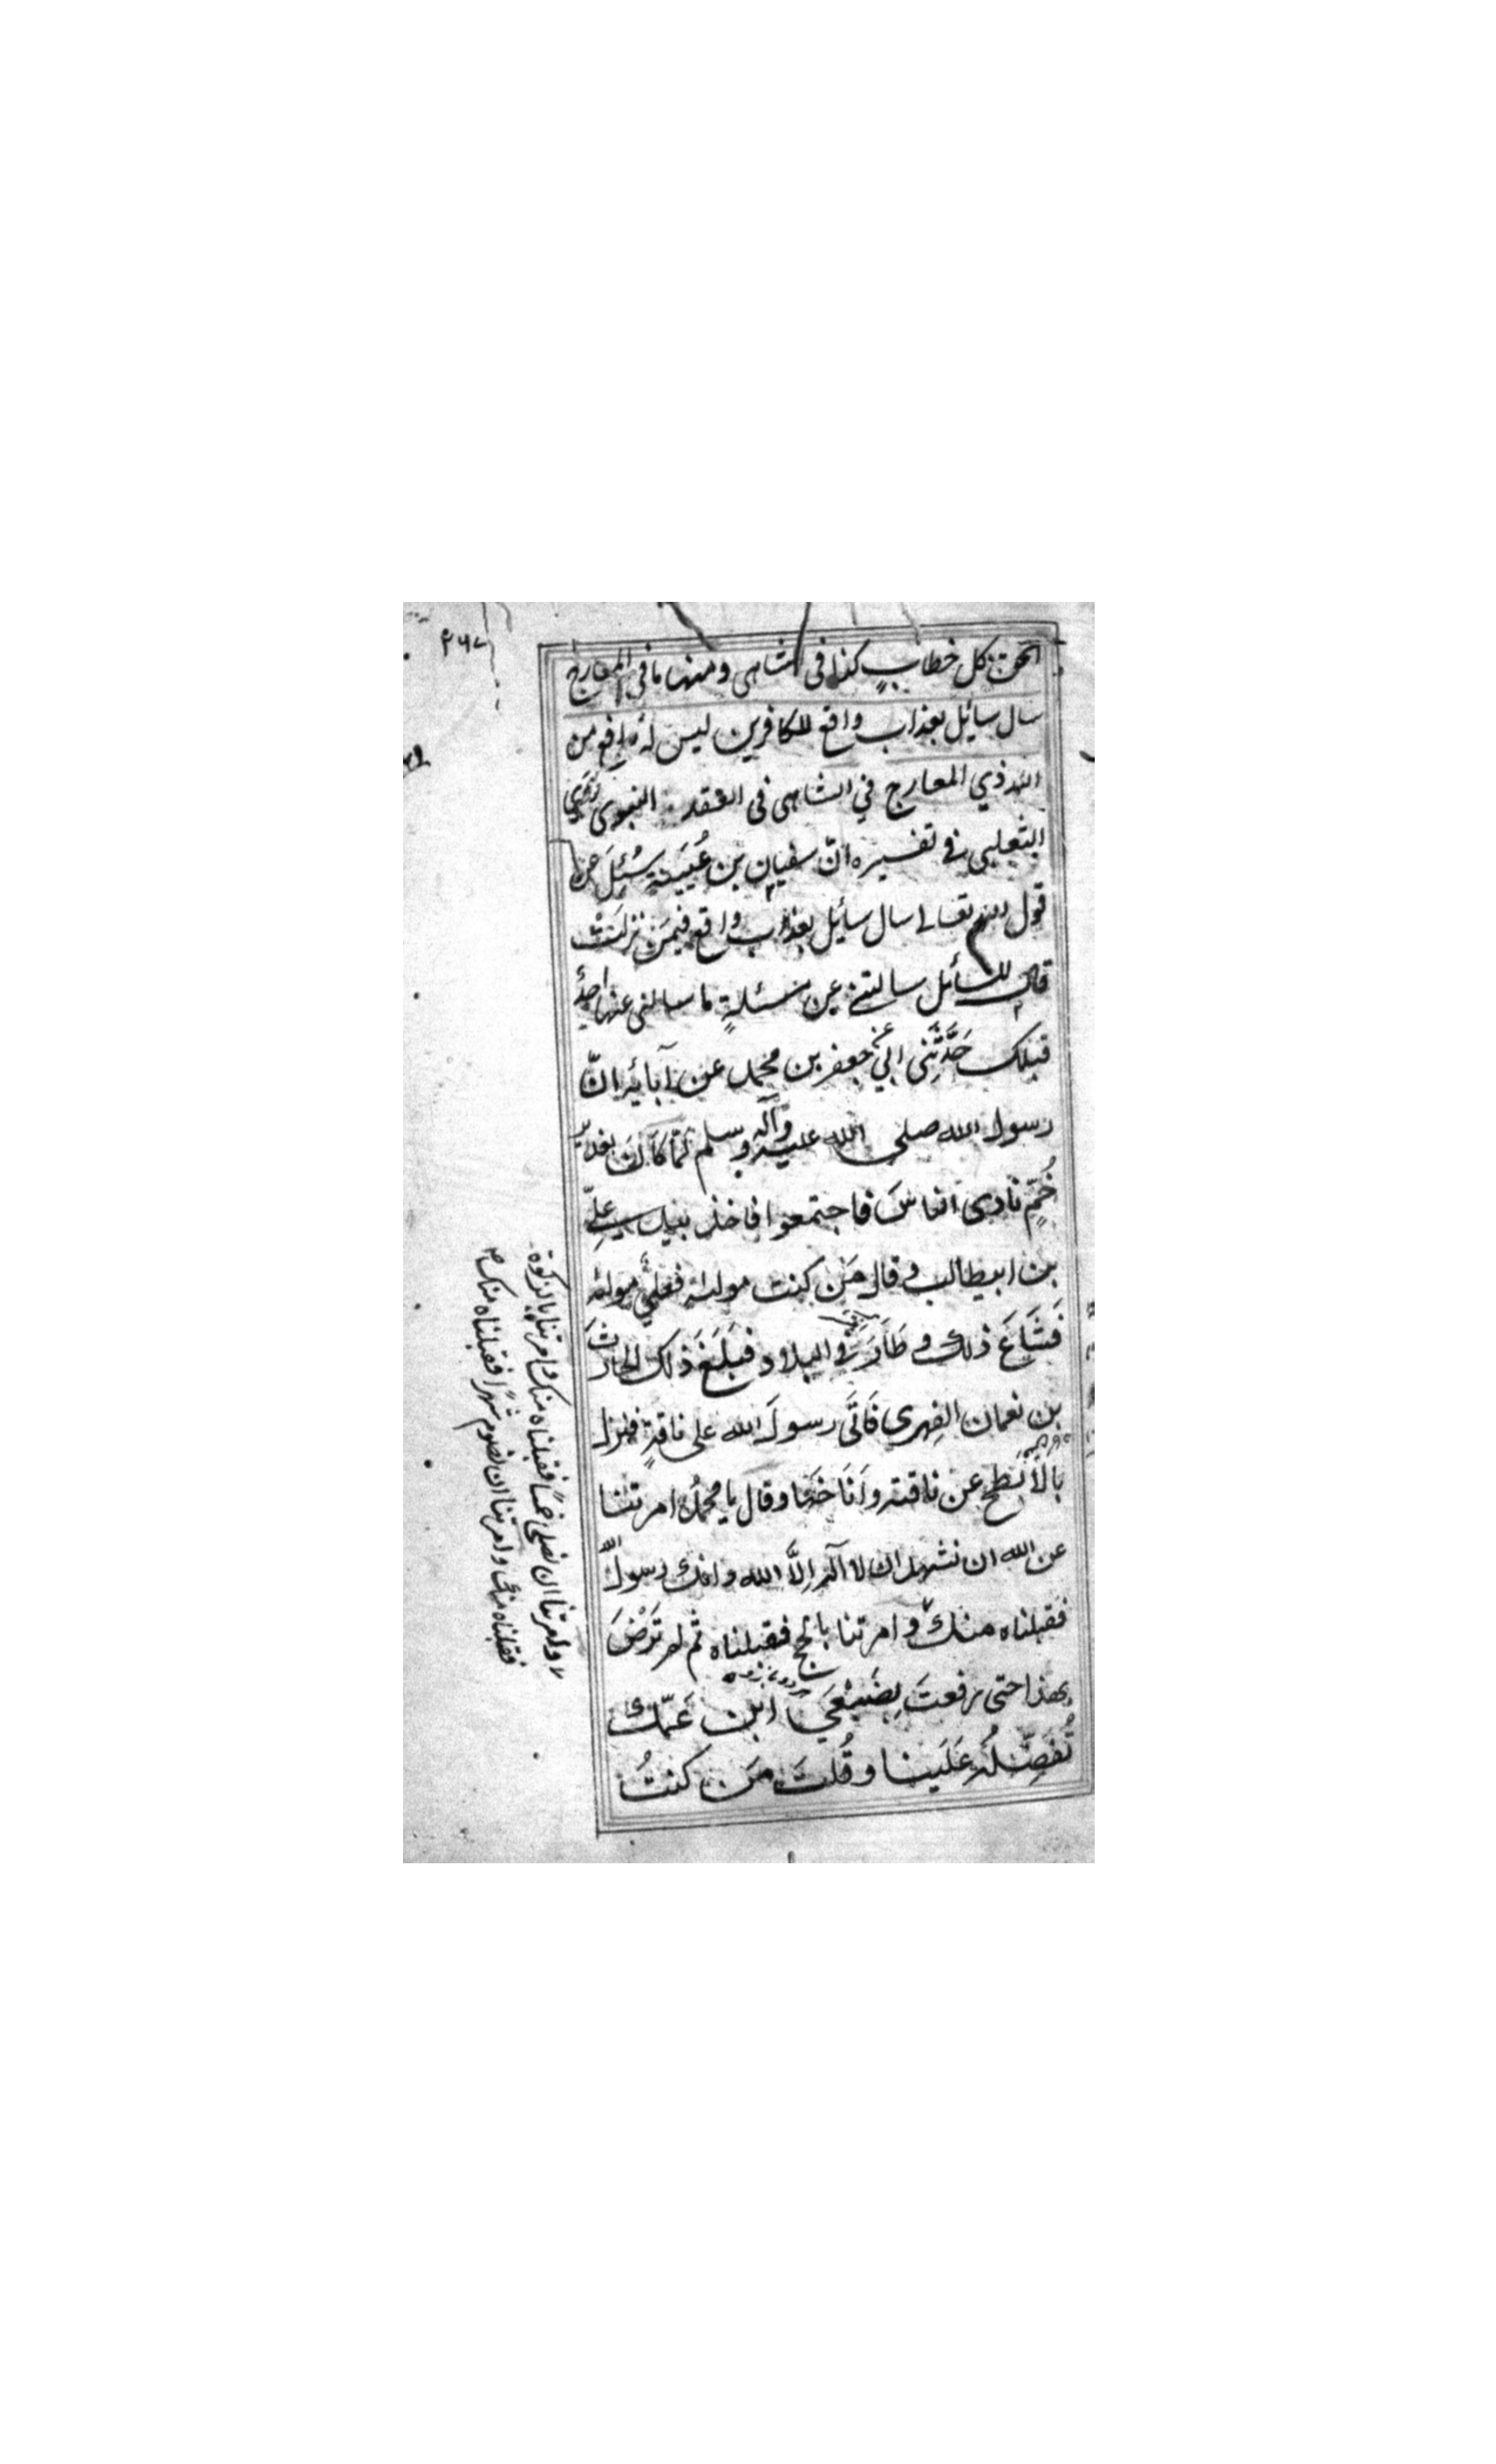 ۲۶۷
كل خطابٍ كذا فى الشاهى ومنها ما فى المعارج
سال سائل بعذاب واقع للكافرين ليس له دافع من
الله ذي المعارج في الشاهى فى العقد النبوى
الثعلبى فى تفسيره انّ سفيان بن عُيَيْنَة سُئِلَ عن
قول الله تعالى سال سائل بعذاب واقع فيمَن نزلَتْ
قال للسائل سالتنى عن مسئلةٍ ما سالنى عنها احدٌ
قبلك حَدَّثَنى ابي عن جعفر بن محمد عن آبائه انّ
رسول الله صلى الله عليه وآله وسلم لمّا كَانَ بغدير
خُمٍّ نادى الناسَ فاجتمعوا فاخذ بيد علىّ
بن ابيطالب و قال مَن كنت مولاه فعلىٌّ مولاه
فَشَاعَ ذلك و طَارَ فى البلاد فبَلَغَ ذلك الحارثَ
بن نعمان الفِهرى فَاتَى رسولَ الله على ناقةٍ فنزل
بالأبطح عن ناقته وأنَاخَهَا وقال يا محمدُ امرتنا
عن الله ان نشهد ان لا اله اِلَّا الله وانك رسولُ الله
فقبلناه منك و امرتنا بالحج فقبلناه ثم لم تَرْضَ
بهذا حتى رفعتَ بِضَبْعَي ابن عَمّك
تُفَضِّلُه عَلَينا وقُلتَ مَن كنتُ
وامرتنا ان نصلى خمسًا فقبلناه منك وامرتنا بالزكوة
فقبلناه منك وامرتنا ان نصوم شهرًا فقبلناه منك